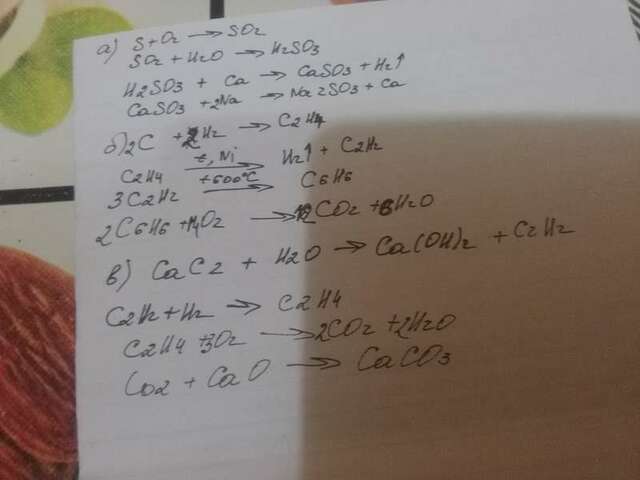 а) S+O2 → SO2
SO2 + H2O → H2SO3
H2SO3 + Ca → CaSO3 + H2↑
CaSO3 + 2Na → Na2SO3 + Ca
б) 2C + 2H2 → C2H4
C2H4 t, Ni → H2↑ + C2H2
3C2H2 +600°C → C6H6
2C6H6 + O2 → 12CO2 + 6H2O
в) CaC2 + H2O → Ca(OH)2 + C2H2
C2H2 + H2 → C2H4
C2H4 + 3O2 → 2CO2 + 2H2O
CO2 + CaO → CaCO3